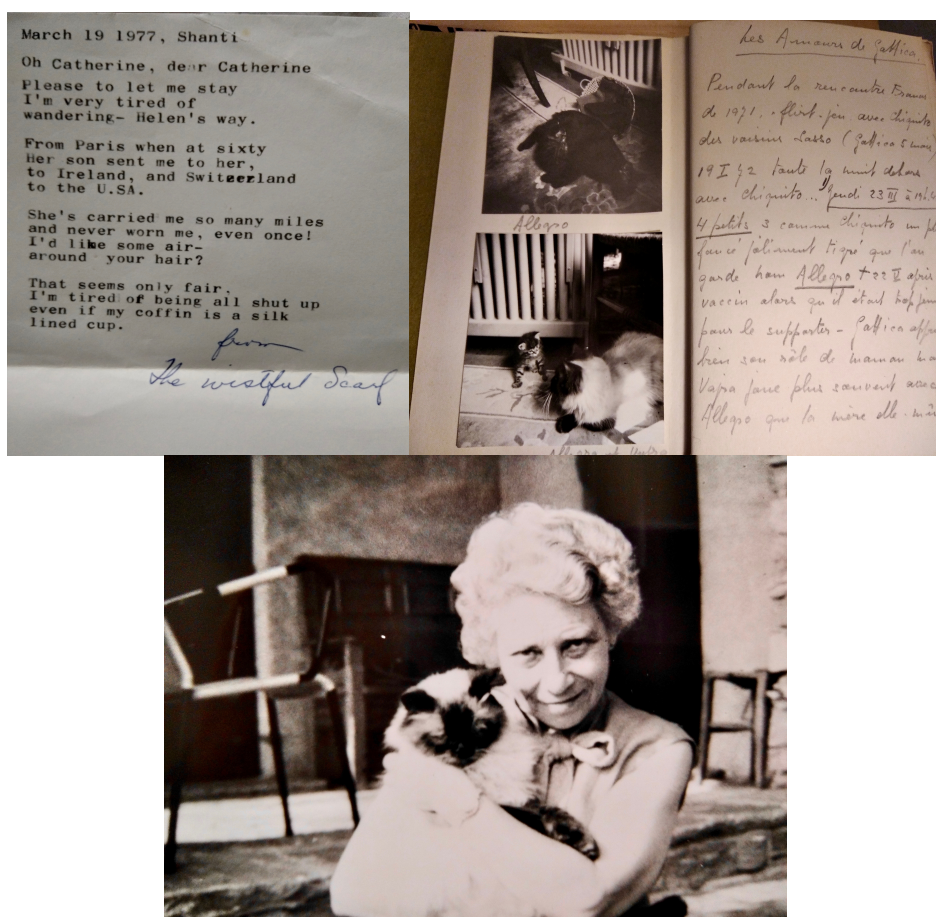 March 19 1977, Shanti
Oh Catherine, dear Catherine
Please to let me stay
I'm very tired of
wandering- Helen's way.
From Paris when at sixty
Her son sent me to her,
to Ireland, and Switzerland
to the U.SA.
She's carried me so many miles
and never worn me, even once!
I'd like some air-
around your hair?
That seems only fair,
I'm tired of being all shut up
even if my coffin is a silk
lined cup.
from
The wistful Scarf
Allegro
Allegro et
Les Amours de Gattica
Pendant la rencontre
de 1971. flirt-jeu avec Chiquito
des voisins Lasso (Gattica 5 mois)
toute la nuit dehors
avec Chiquito... Jeudi 23 III à
4 petits 3 comme Chiquito un
foncé joliment tigré que l'on
garde nom Allegro † 22 V après
vaccin alors qu'il était trop jeune
pour le supporter - Gattica
bien son rôle de maman
joue plus souvent avec
Allegro que la mère elle-même